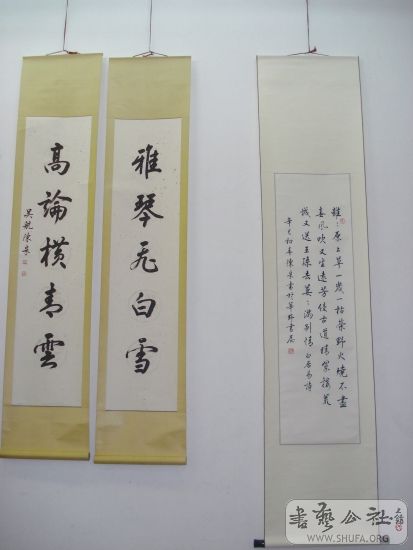 離〻原上草一歲一枯榮野火燒不盡
春風吹又生遠芳侵古道晴翠接荒
城又送王孫去萋〻滿別情白居易詩
初春陳書於書屋
雅琴飛白雪
高論橫青雲
吴航陳
書藝公社
WWW.SHUFA.ORG